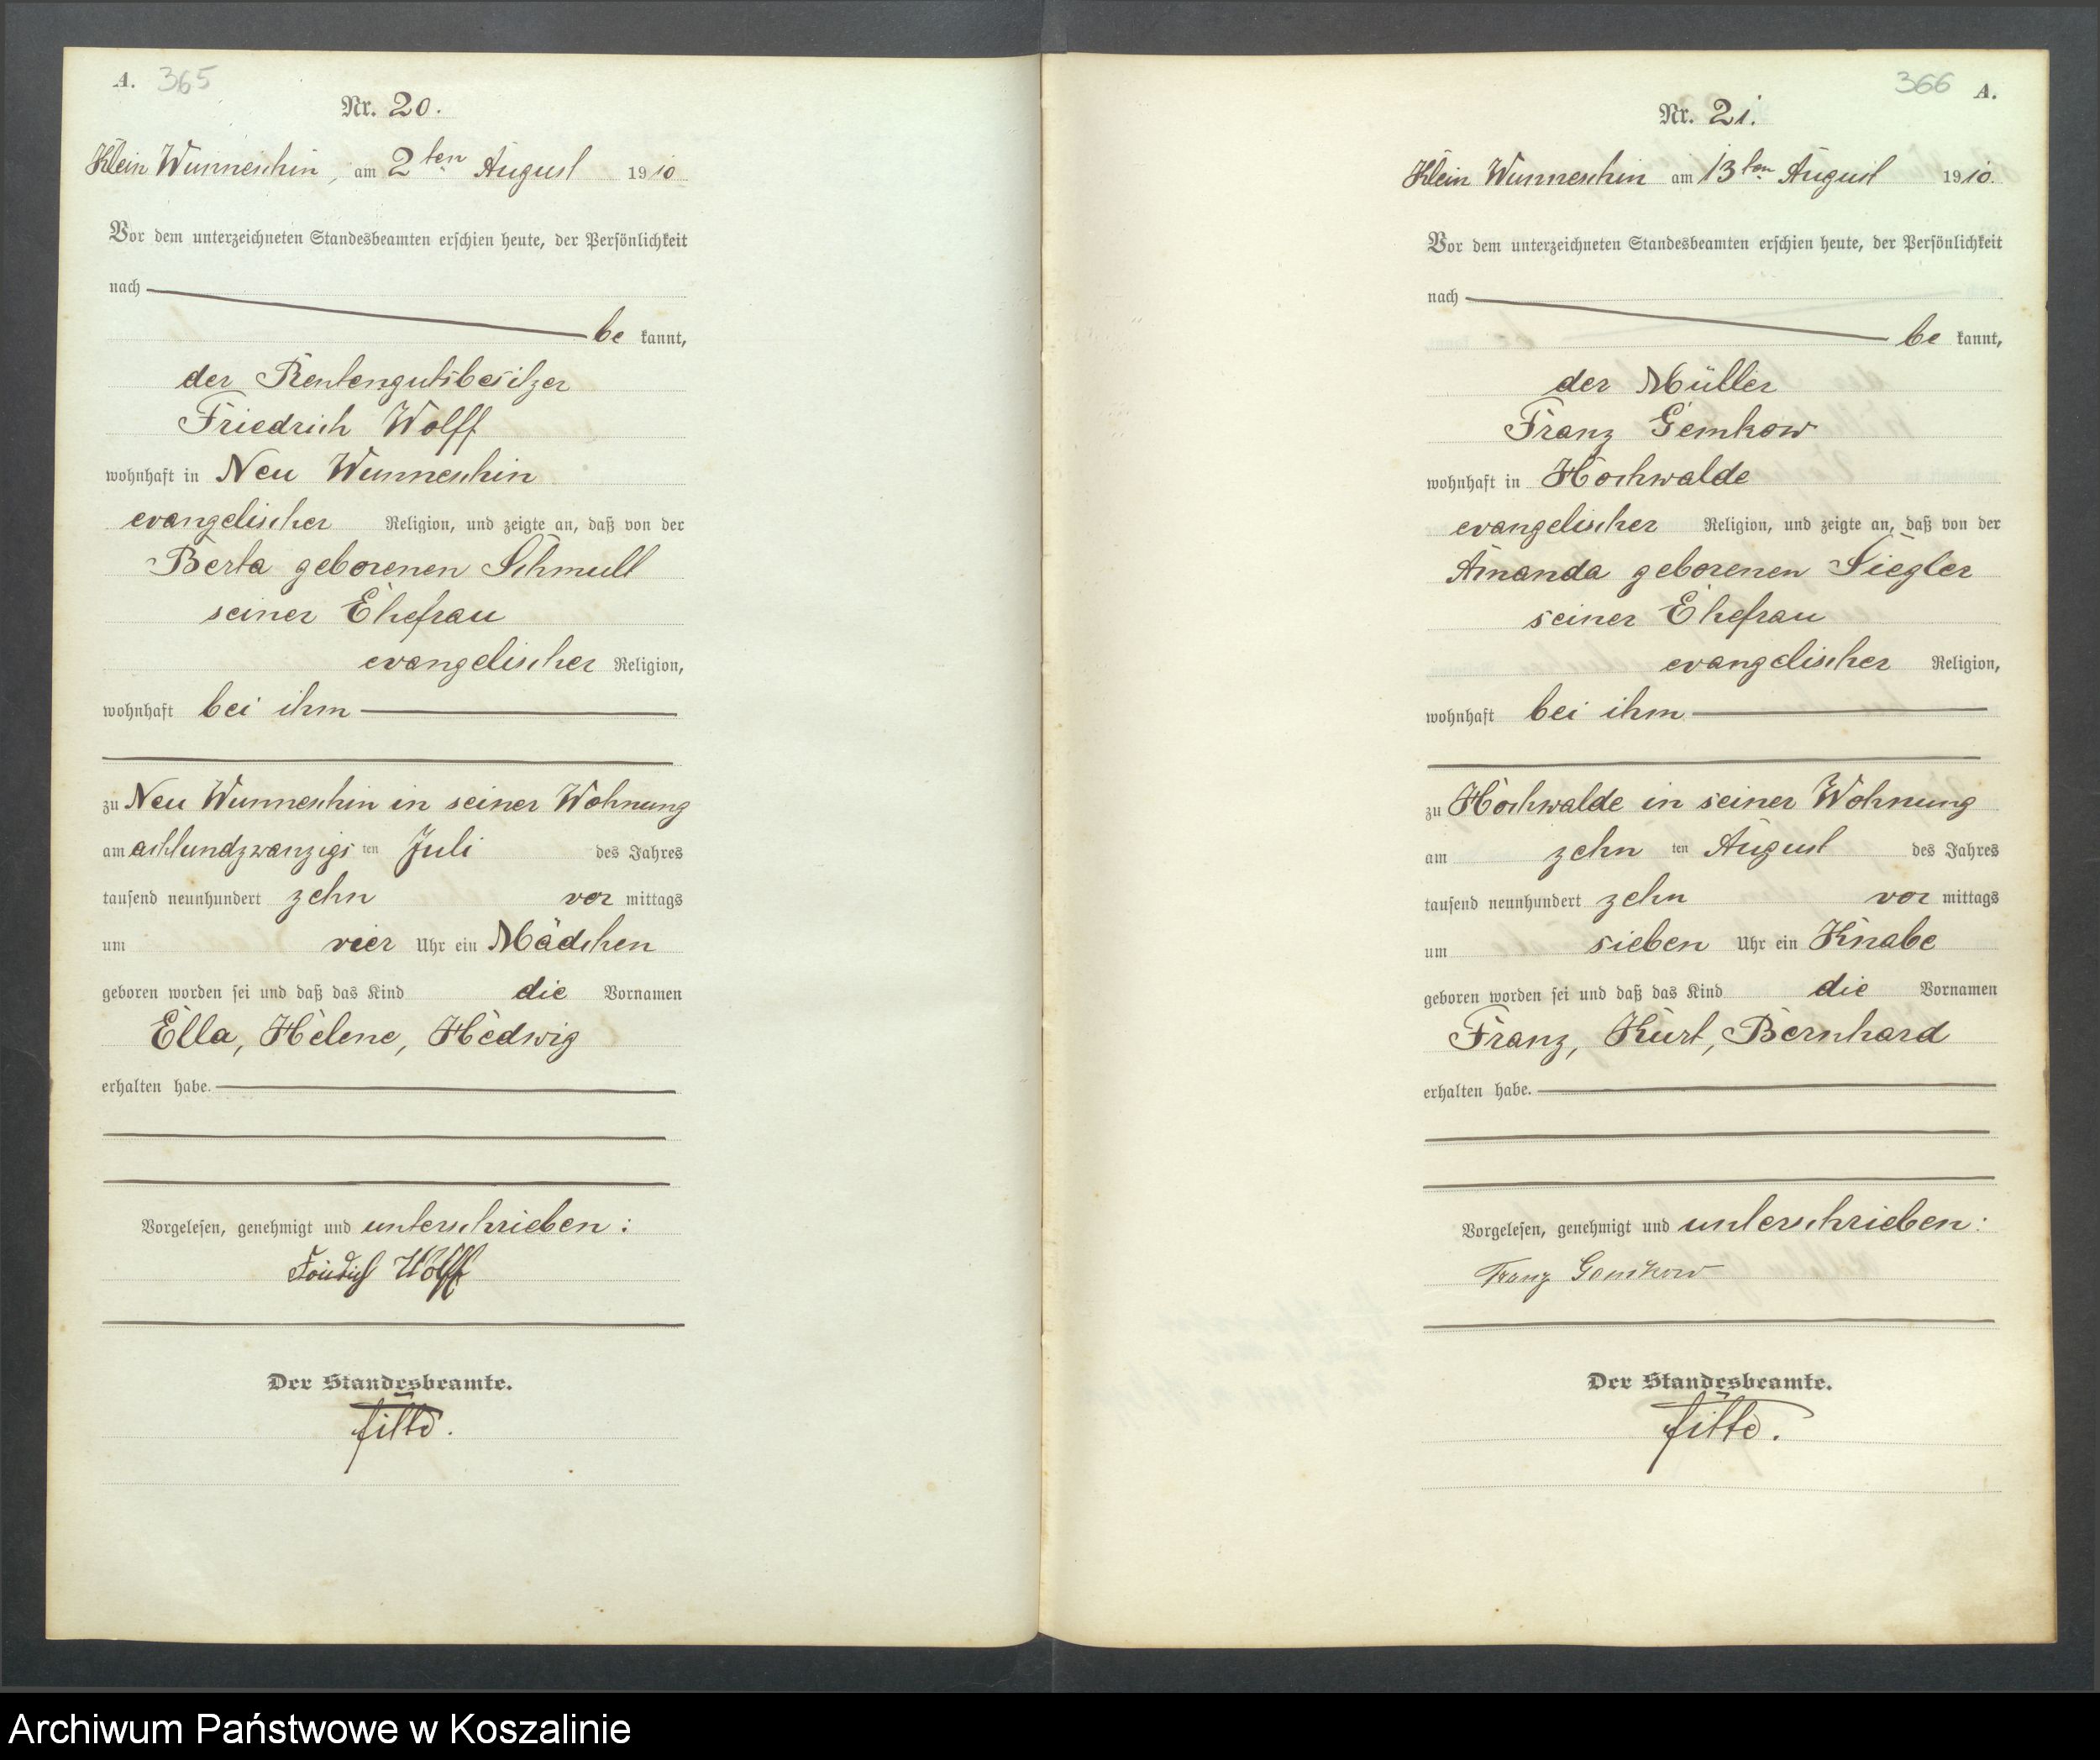 A. 365
Nr. 20.
Klein Wunneschin, am 2ten August 1910
Vor dem unterzeichneten Standesbeamten erschien heute, der Persönlichkeit
nach
be kannt,
der Rentengutsbesitzer
Friedrich Wolff
wohnhaft in Neu Wunneschin
evangelischer Religion, und zeigte an, daß von der
Berta geborenen Schmull
seiner Ehefrau
evangelischer Religion,
wohnhaft bei ihm
zu Neu Wunneschin in seiner Wohnung
am achtundzwanzigs ten Juli des Jahres
tausend neunhundert zehn vor mittags
um vier Uhr ein Mädchen
geboren worden sei und daß das Kind die Vornamen
Ella, Helene, Hedwig
erhalten habe.
Vorgelesen, genehmigt und unterschrieben:
Friedrich Wolff
Der Standesbeamte.
366 A.
Nr. 21.
Klein Wunneschin am 13ten August 1910.
Vor dem unterzeichneten Standesbeamten erschien heute, der Persönlichkeit
nach
be kannt,
der Müller
Franz Gemkow
wohnhaft in Hochwalde
evangelischer Religion, und zeigte an, daß von der
Amanda geborenen Siegler
seiner Ehefrau
evangelischer Religion,
wohnhaft bei ihm
zu Hochwalde in seiner Wohnung
am zehn ten August des Jahres
tausend neunhundert zehn vor mittags
um sieben Uhr ein Knabe
geboren worden sei und daß das Kind die Vornamen
Franz, Kurt, Bernhard
erhalten habe.
Vorgelesen, genehmigt und unterschrieben:
Franz Gemkow
Der Standesbeamte.
Archiwum Państwowe w Koszalinie